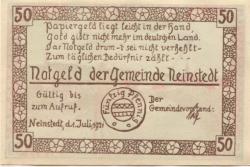 50 50
Papiergeld liegt leicht in der Hand,
Gold gibt's nicht mehr im deutschen Land.
Der Notgeld drum-t sei nicht verfehlt-
Zum täglichen Bedürfnis zählt-
Notgeld der Gemeinde Neinstedt
Gültig bis
zum Aufruf.
Fünfzig Pfennig
Der
Gemeindevorstand:
Neinstedt, d. 1. Juli 1921
50 50